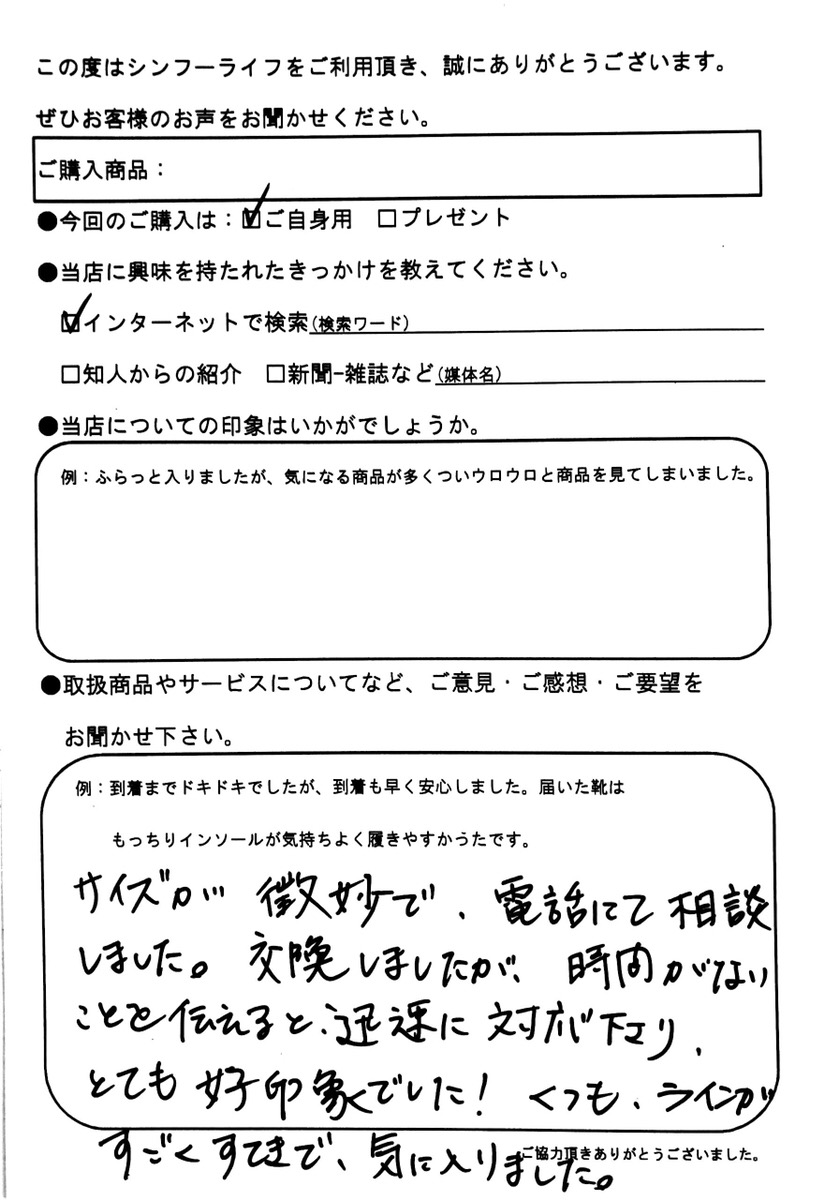 この度はシンフーライフをご利用頂き、誠にありがとうございます。
ぜひお客様のお声をお聞かせください。
ご購入商品：
●今回のご購入は：☑ご自身用　□プレゼント
●当店に興味を持たれたきっかけを教えてください。
☑インターネットで検索(検索ワード)
□知人からの紹介　□新聞-雑誌など(媒体名)
●当店についての印象はいかがでしょうか。
例：ふらっと入りましたが、気になる商品が多くついウロウロと商品を見てしまいました。
●取扱商品やサービスについてなど、ご意見・ご感想・ご要望を
お聞かせ下さい。
例：到着までドキドキでしたが、到着も早く安心しました。届いた靴は
もっちりインソールが気持ちよく履きやすかうたです。
サイズが 微妙で、電話にて相談
しました。交換しましたが、時間がない
ことを伝えると、迅速に対応下さり、
とても好印象でした！ くつも、ラインが
すごくすてきで、気に入りました。
ご協力頂きありがとうございました。